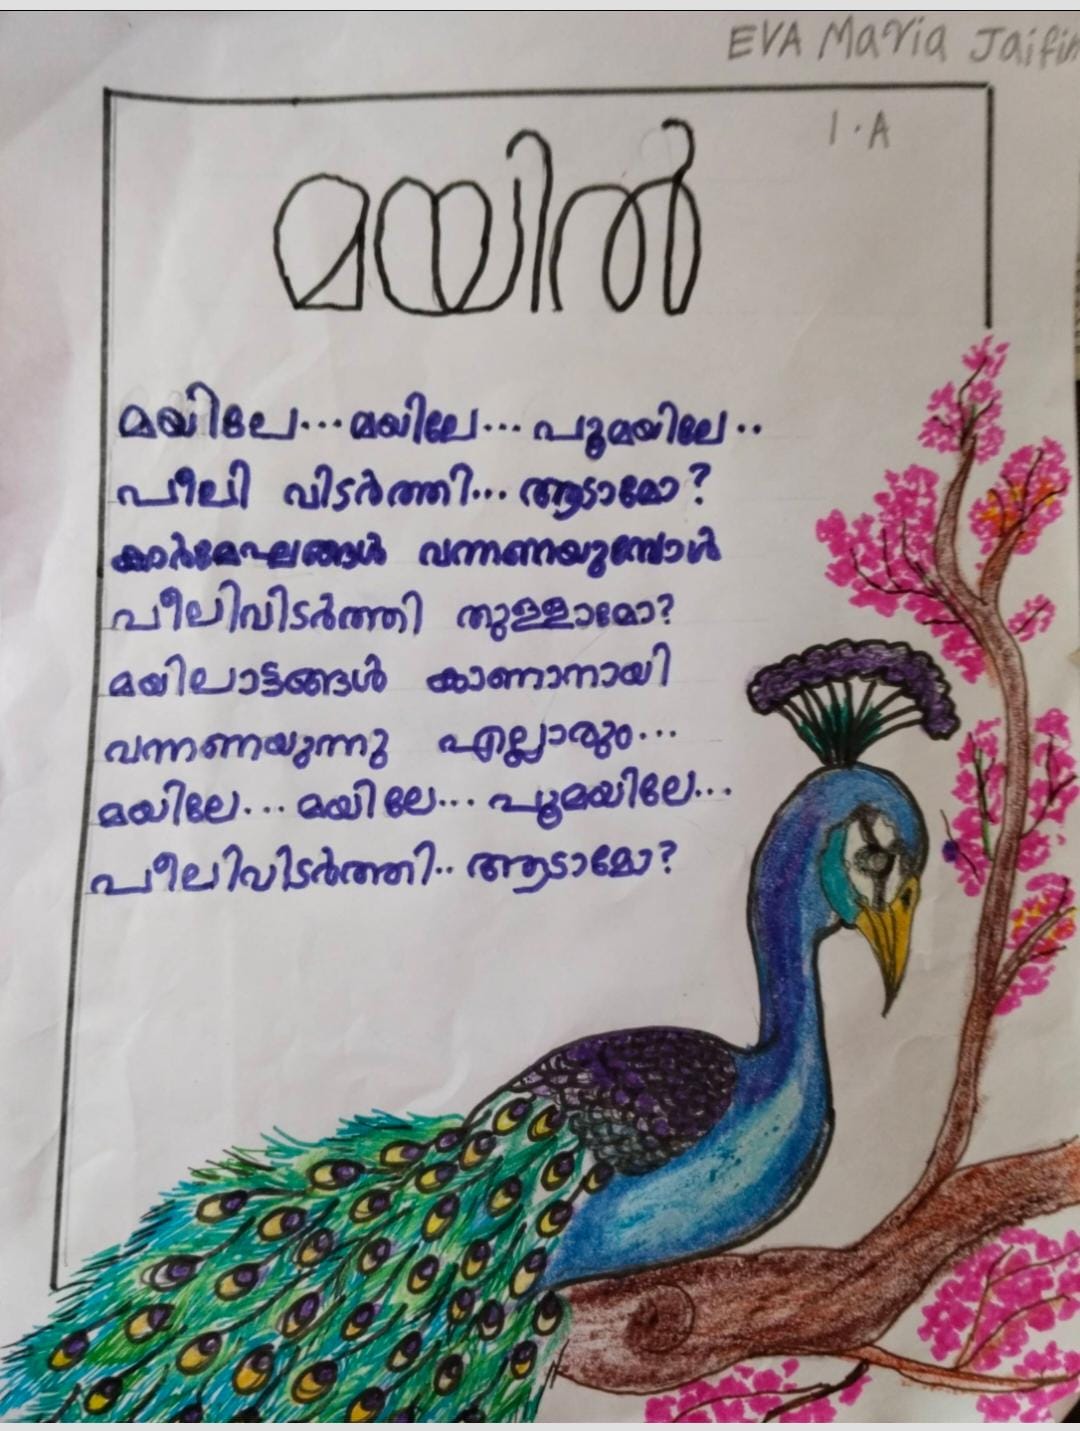 EVA Maria Jaifin
1.A
മയിൽ
മയിലേ... മയിലേ... പൂമയിലേ..
പീലി വിടർത്തി... ആടാമോ?
കാർമേഘങ്ങൾ വന്നണയുമ്പോൾ
പീലിവിടർത്തി തുള്ളാമോ?
മയിലാട്ടങ്ങൾ കാണാനായി
വന്നണയുന്നു എല്ലാരും...
മയിലേ... മയിലേ... പൂമയിലേ...
പീലിവിടർത്തി.. ആടാമോ?